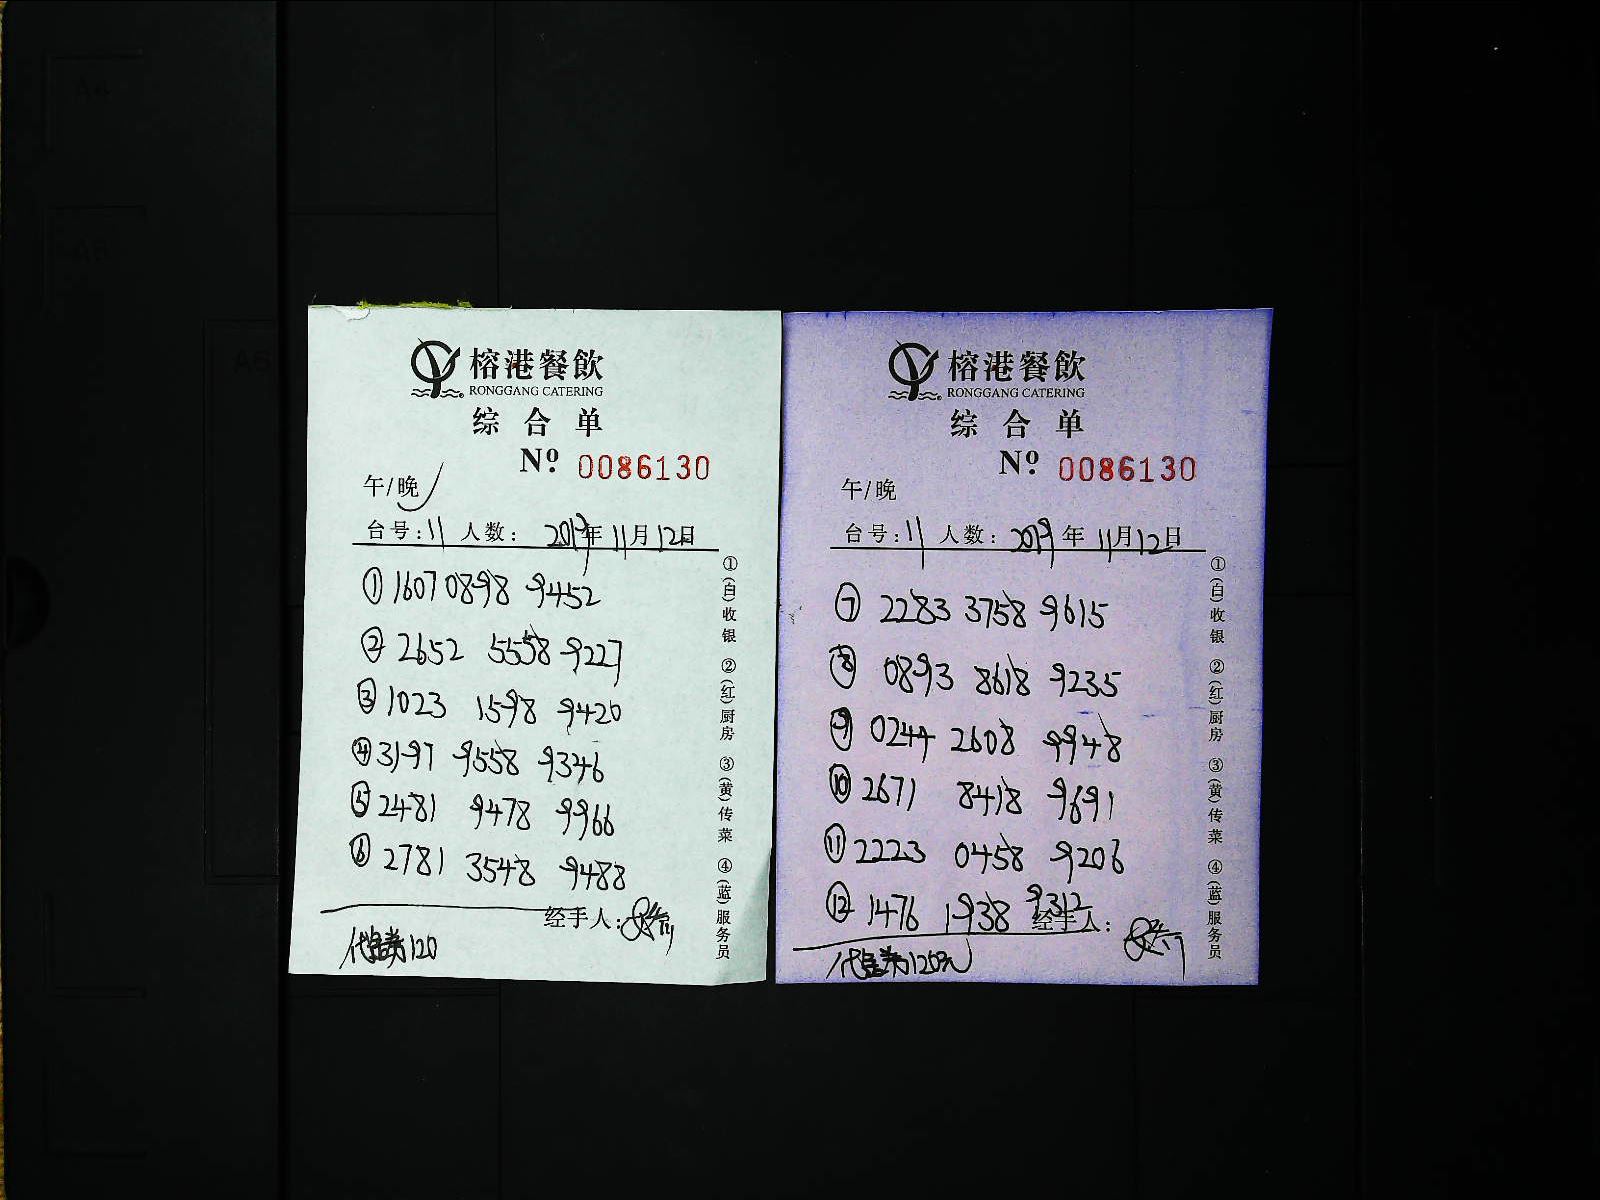 榕港餐飲
RONGGANG CATERING
综合单
Nº 0086130
午/晚
台号:11 人数: 2019年11月12日
① 1607 0898 9452
② 2652 5558 9227
③ 1023 1598 9420
④ 3197 9558 9346
⑤ 2481 9478 9966
⑥ 2781 3548 9488
经手人:
代金券120
①(白)收银 ②(红)厨房 ③(黄)传菜 ④(蓝)服务员
榕港餐飲
RONGGANG CATERING
综合单
Nº 0086130
午/晚
台号:11 人数: 2019年11月12日
⑦ 2283 3758 9615
⑧ 0893 8618 9235
⑨ 0244 2608 9948
⑩ 2671 8418 9691
⑪ 2223 0458 9206
⑫ 1476 1938 9312
经手人:
代金券120元
①(白)收银 ②(红)厨房 ③(黄)传菜 ④(蓝)服务员